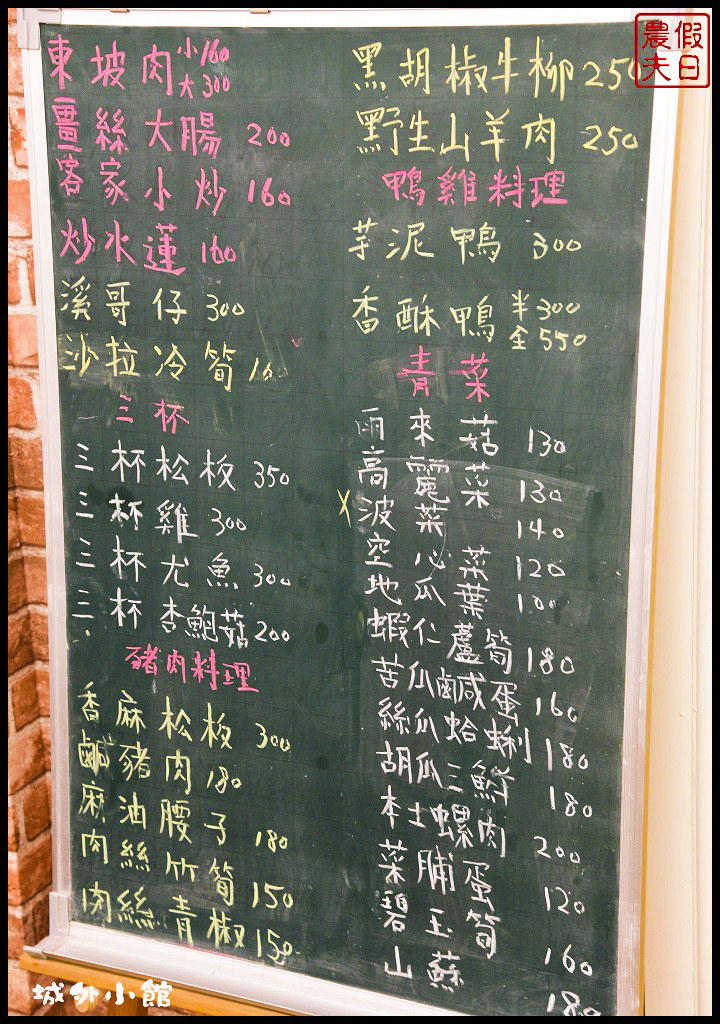 東坡肉 小160 大300
薑絲大腸 200
客家小炒 160
炒水蓮 160
溪哥仔 300
沙拉冷筍 160
三杯
三杯松板 350
三杯雞 300
三杯尤魚 300
三杯杏鮑菇 200
豬肉料理
香麻松板 300
鹹豬肉 180
麻油腰子 180
肉絲竹筍 150
肉絲青椒 150
黑胡椒牛柳 250
野生山羊肉 250
鴨雞料理
芋泥鴨 300
香酥鴨 半300 全550
青菜
雨來菇 130
高麗菜 130
x 波菜 140
空心菜 120
地瓜葉 100
蝦仁蘆筍 180
苦瓜鹹蛋 160
絲瓜蛤蜊 180
胡瓜三鮮 180
本土螺肉 200
菜脯蛋 120
碧玉筍 160
山蘇 180
農夫假日
城外小館